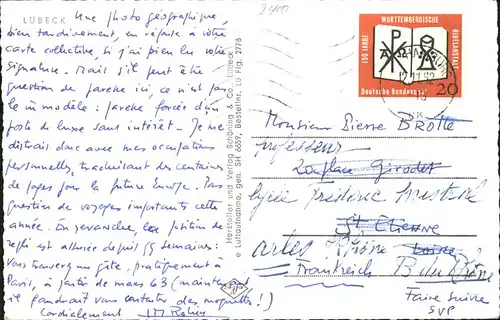 LÜBECK
Une photo géographique,
bien tardivement, en réponse à votre
carte collective, si j'ai pu lire les
signature. Mais s'il peut être
question de
le modèle :
poste de luxe sans intérêt. Je me
distrais donc avec mes occupations
personnelles, traduisant des centaines
de pages pour la future Europe. Pas
question de voyages importants cette
année. En revanche, les position de
repli est assurée depuis 15 semaines :
Vous trouverez un gîte, pratiquement à
Paris, à partir de mars 63 (maintenant
il faudrait vous contenter des moquettes !)
Cordialement
Hersteller und Verlag Schöning & Co., Lübeck
Luftaufnahme, gen. SH 6659, Bestellnr. Lü Flg. 2778
2400
150 JAHRE
WÜRTTEMBERGISCHE
BIBELANSTALT
Deutsche Bundespost
20
Monsieur Pierre BROTTE
professeur
20 place Girodet
Lycée Frédéric Mistral
St Etienne
Arles Rhône Loire
Frankreich B du Rhône
Faire suivre
SVP